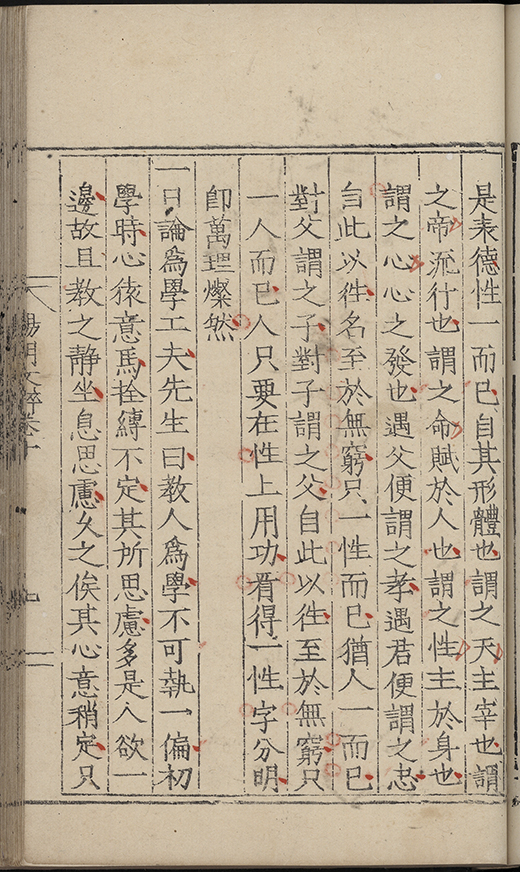 是表德性一而已自其形體也謂之天主宰也謂
之帝流行也謂之命賦於人也謂之性主於身也
謂之心心之發也遇父便謂之孝遇君便謂之忠
自此以徃名至於無窮只一性而已猶人一而已
對父謂之子對子謂之父自此以徃至於無窮只
一人而已人只要在性上用功看得一性字分明
卽萬理燦然
一日論爲學工夫先生曰教人爲學不可執一偏初
學時心猿意馬拴縛不定其所思慮多是人欲一
邊故且教之静坐息思慮久之俟其心意稍定只
陽明文粹卷十